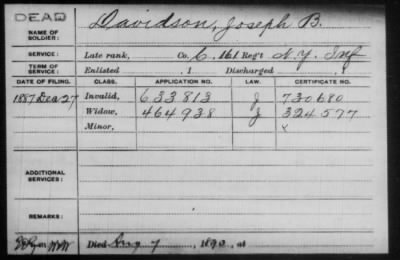 DEAD
NAME OF SOLDIER: Davidson, Joseph B.
SERVICE: Late rank, Co. C, 161 Reg't N.Y. Inf
TERM OF SERVICE: Enlisted , 1 Discharged , 1
DATE OF FILING. CLASS. APPLICATION NO. LAW. CERTIFICATE NO.
1887 Dec 27 Invalid, 633813 J 730680
Widow, 464938 J 324577
Minor,
ADDITIONAL SERVICES:
REMARKS:
Died Aug 7, 1890, at